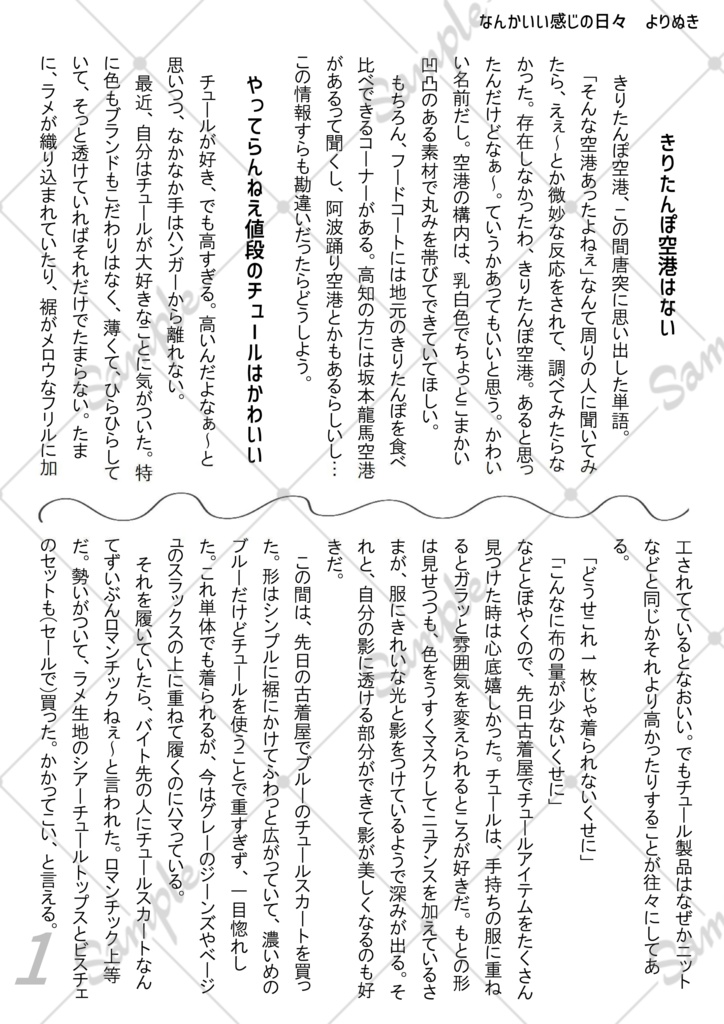 なんかいい感じの日々　よりぬき
きりたんぽ空港はない
きりたんぽ空港、この間唐突に思い出した単語。
「そんな空港あったよねぇ」なんて周りの人に聞いてみ
たら、えぇ〜とか微妙な反応をされて、調べてみたらな
かった。存在しなかったわ、きりたんぽ空港。あると思っ
たんだけどなぁ〜。ていうかあってもいいと思う。かわい
い名前だし。空港の構内は、乳白色でちょっとこまかい
凹凸のある素材で丸みを帯びてできていてほしい。
もちろん、フードコートには地元のきりたんぽを食べ
比べできるコーナーがある。高知の方には坂本龍馬空港
があるって聞くし、阿波踊り空港とかもあるらしいし…
この情報すらも勘違いだったらどうしよう。
やってらんねえ値段のチュールはかわいい
チュールが好き、でも高すぎる。高いんだよなぁ〜と
思いつつ、なかなか手はハンガーから離れない。
最近、自分はチュールが大好きなことに気がついた。特
に色もブランドもこだわりはなく、薄くて、ひらひらして
いて、そっと透けていればそれだけでたまらない。たま
に、ラメが織り込まれていたり、裾がメロウなフリルに加
工されてているとなおいい。でもチュール製品はなぜかニット
などと同じかそれより高かったりすることが往々にしてあ
る。
「どうせこれ一枚じゃ着られないくせに」
「こんなに布の量が少ないくせに」
などとぼやくので、先日古着屋でチュールアイテムをたくさん
見つけた時は心底嬉しかった。チュールは、手持ちの服に重ね
るとガラッと雰囲気を変えられるところが好きだ。もとの形
は見せつつも、色をうすくマスクしてニュアンスを加えているさ
まが、服にきれいな光と影をつけているようで深みが出る。そ
れと、自分の影に透ける部分ができて影が美しくなるのも好
きだ。
この間は、先日の古着屋でブルーのチュールスカートを買っ
た。形はシンプルに裾にかけてふわっと広がっていて、濃いめの
ブルーだけどチュールを使うことで重すぎず、一目惚れし
た。これ単体でも着られるが、今はグレーのジーンズやベージ
ュのスラックスの上に重ねて履くのにハマっている。
それを履いていたら、バイト先の人にチュールスカートなん
てずいぶんロマンチックねぇ〜と言われた。ロマンチック上等
だ。勢いがついて、ラメ生地のシアーチュールトップスとビスチェ
のセットも(セールで)買った。かかってこい、と言える。
1
Sample
Sample
Sample
Sample
Sample
Sample
Sample
Sample